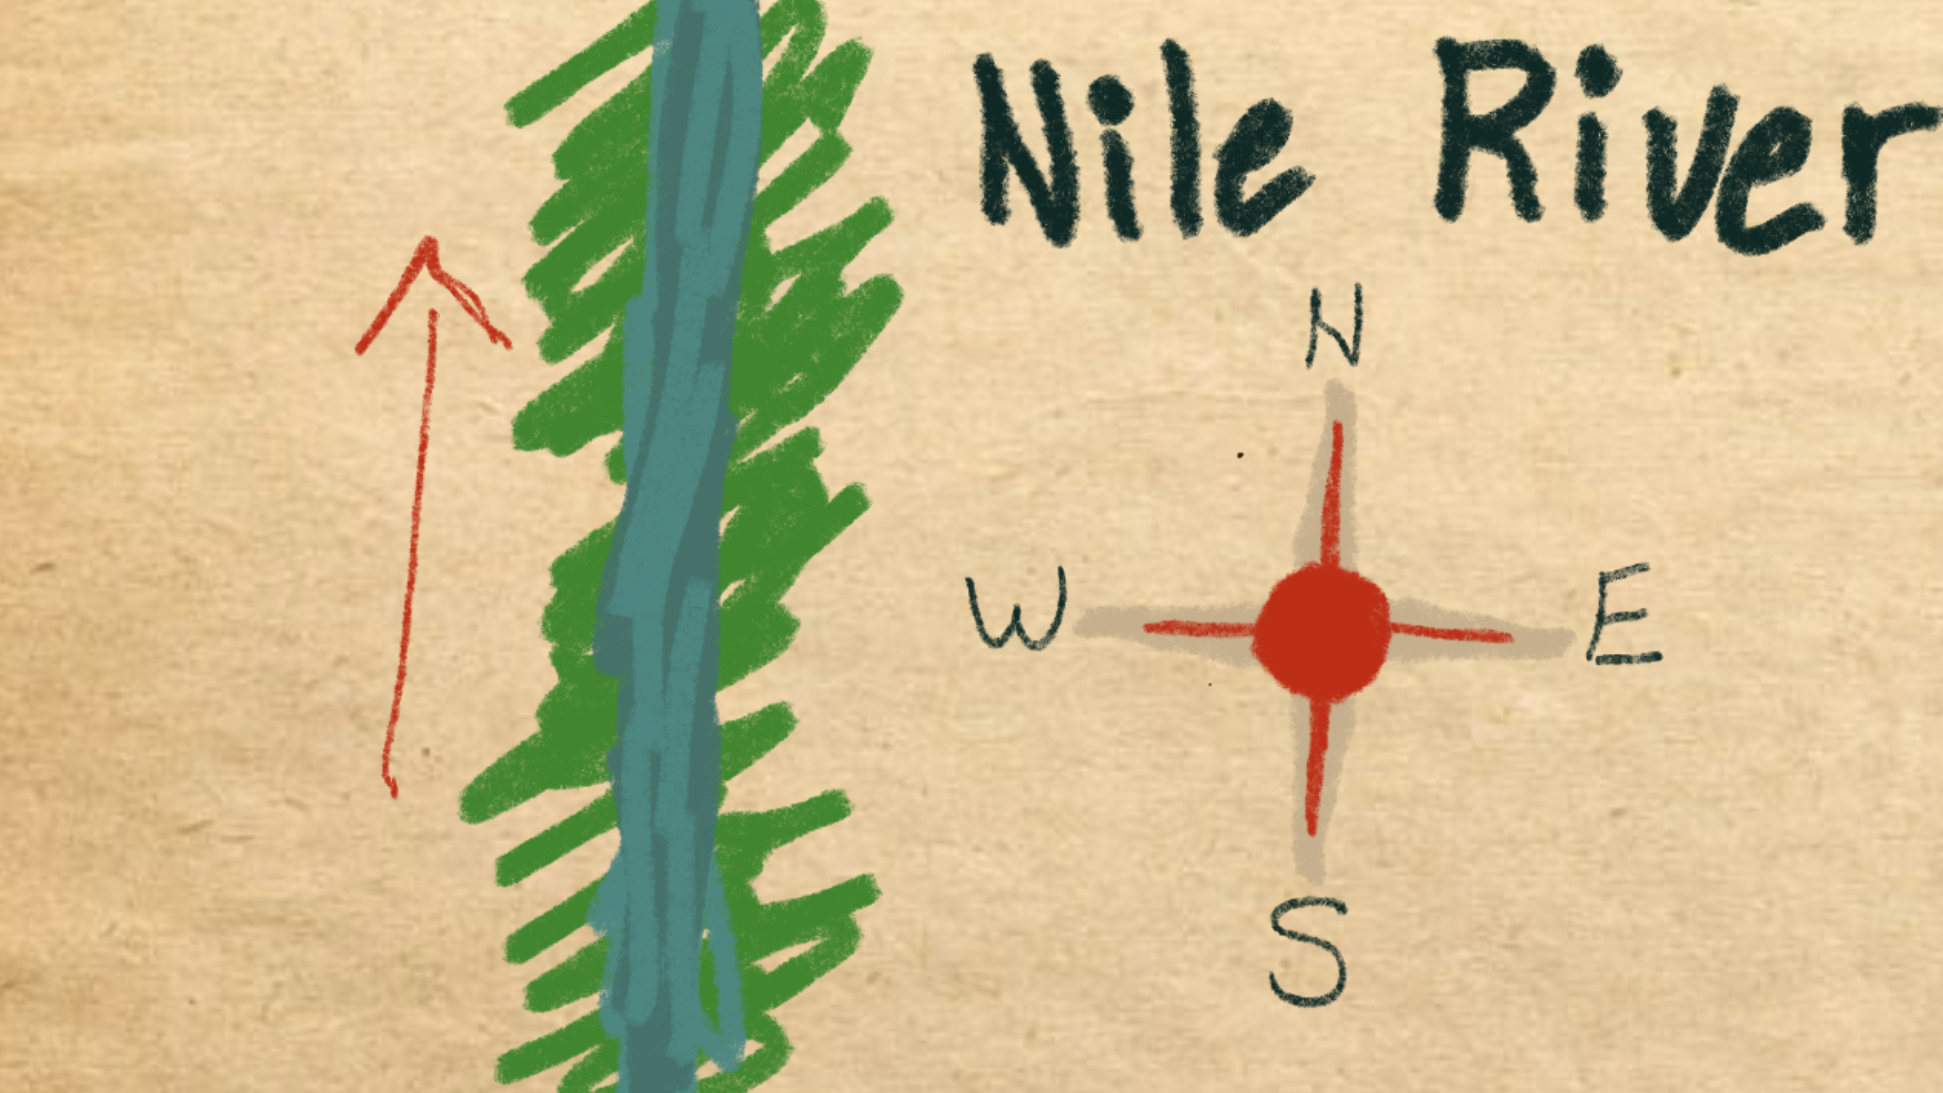 Nile River
N
W E
S